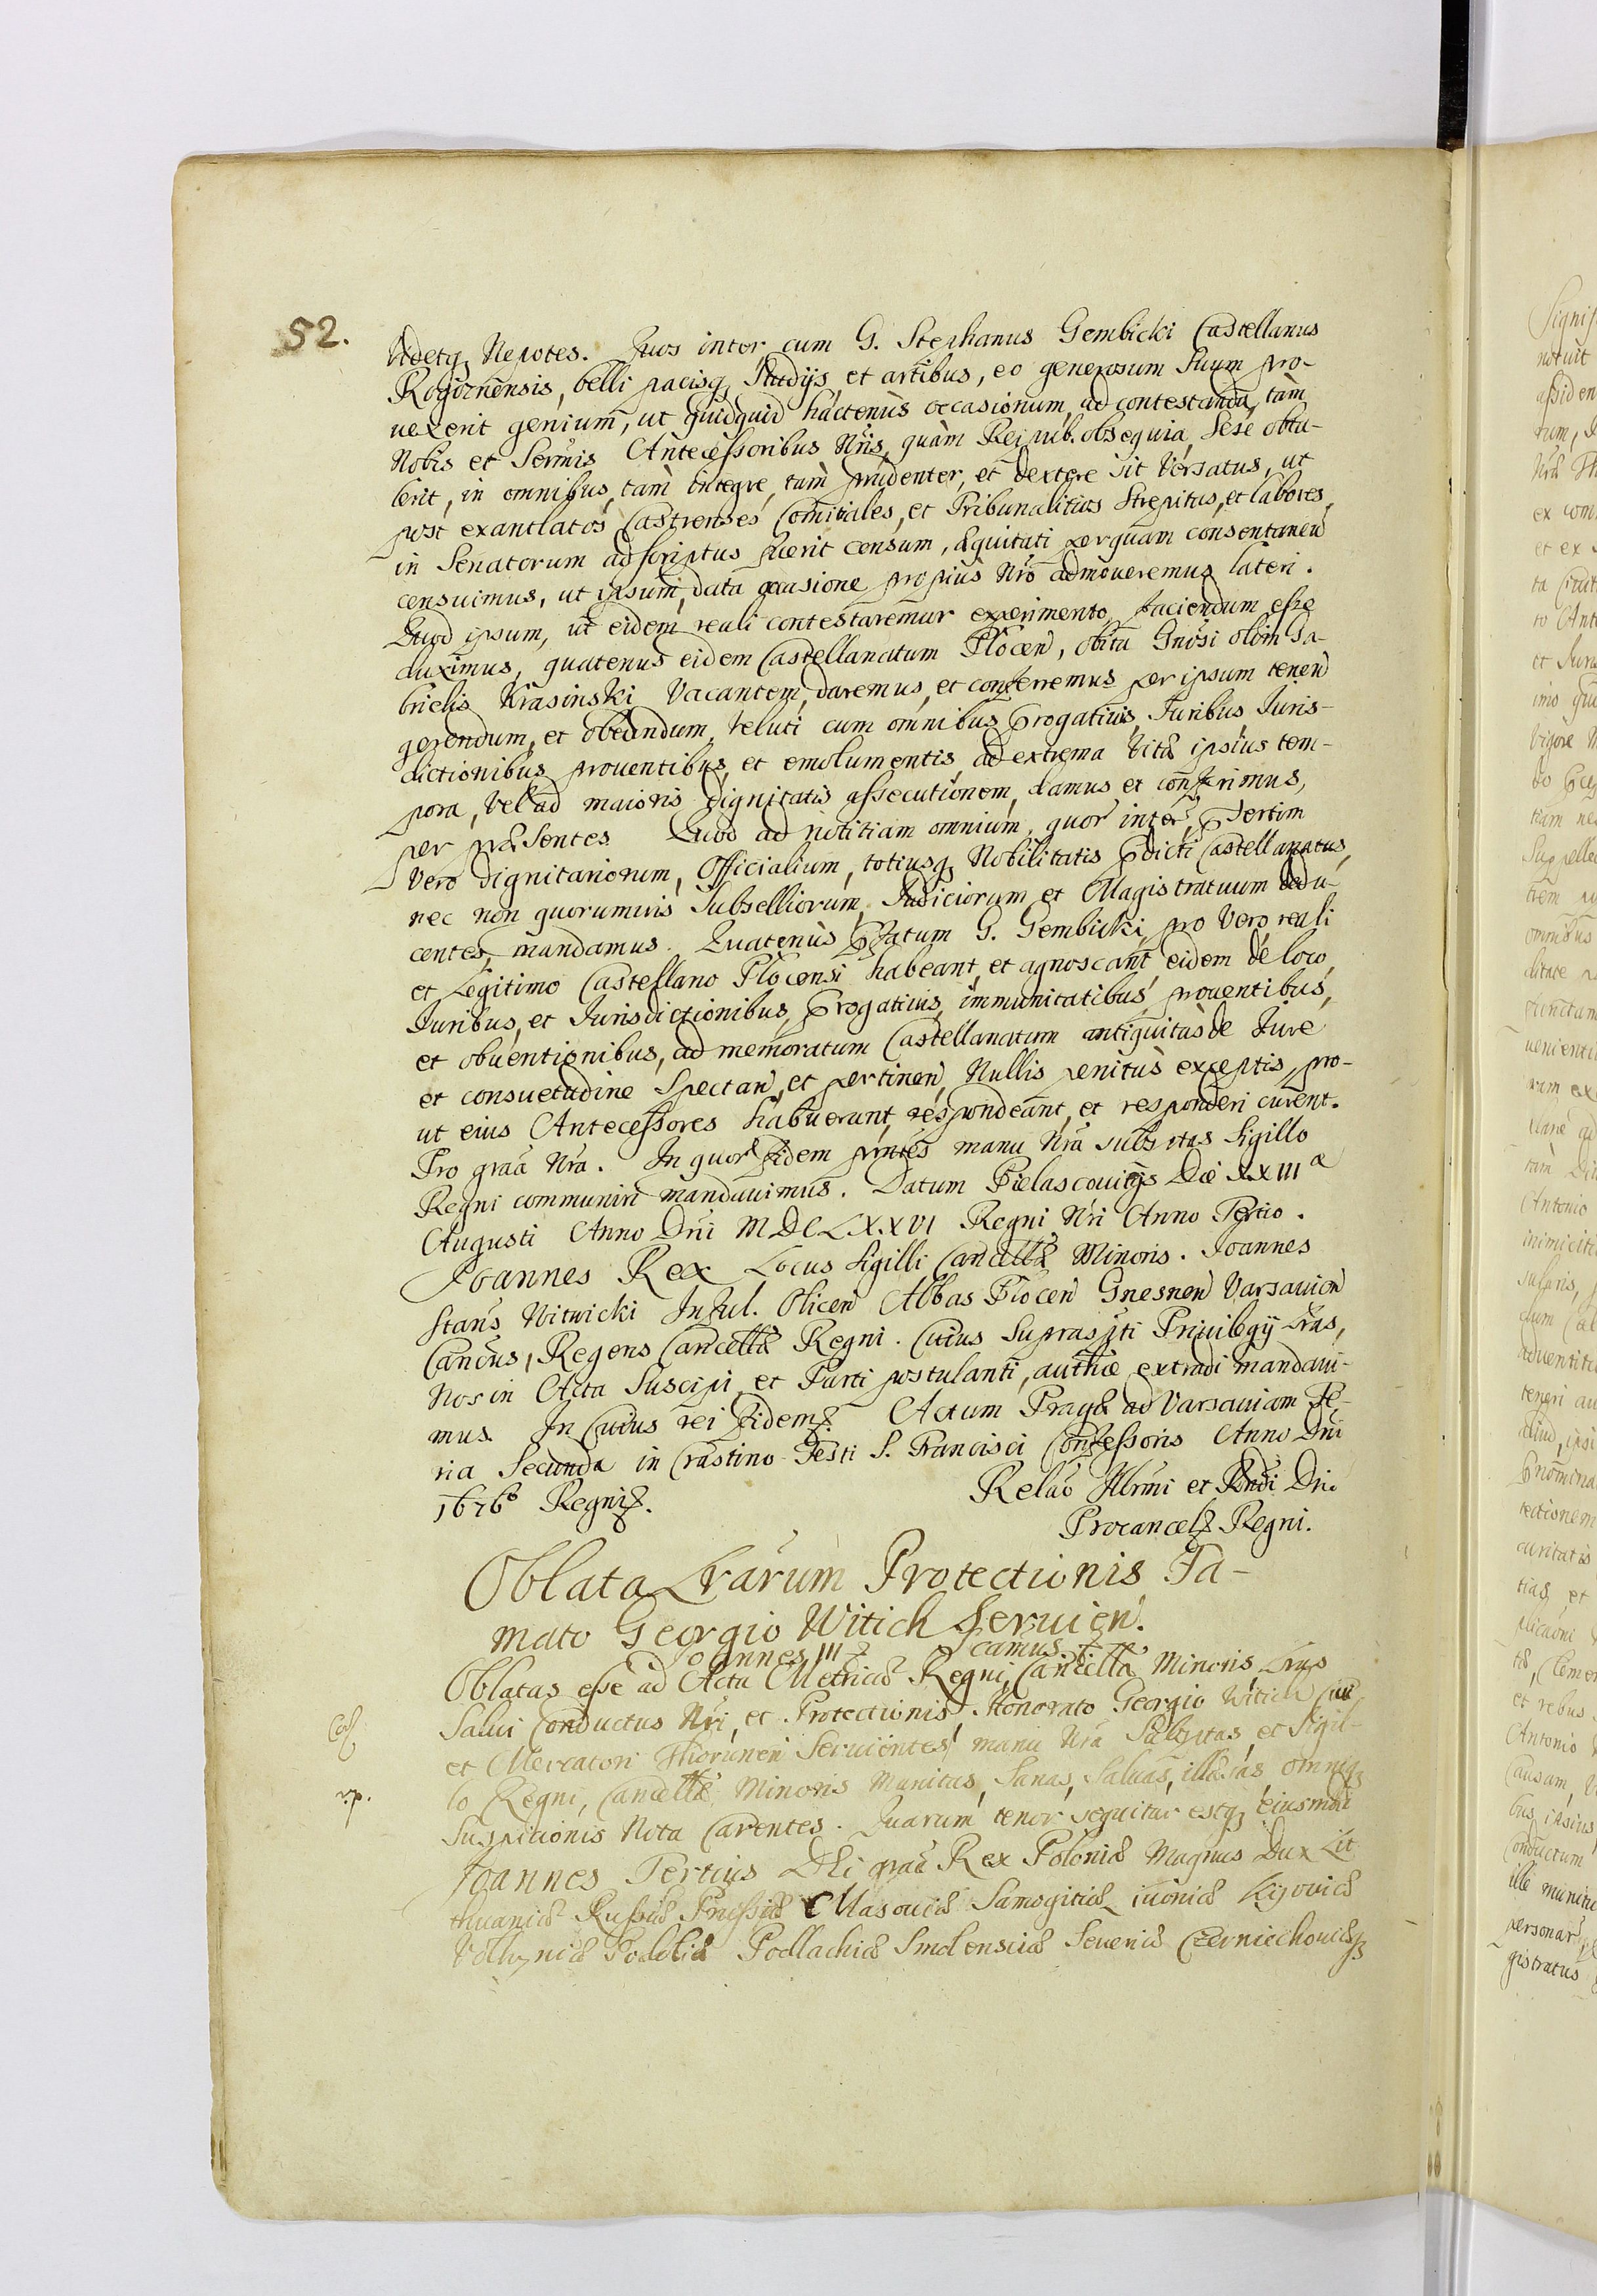 52.
Videtq, Nepotes. Quos inter, cum G. Stephanus Gembicki Castellanus
Rogoznensis, belli pacisq, Studijs, et artibus, eo generosum Suum pro-
uexerit genium, ut quidquid hactenùs occasionum, ad contestanda, tàm
Nobis et Sermis Antecessoribus Nris, quàm Reipub. obsequia, Sese obtu-
lerit, in omnibus, tàm integre, tàm prudenter, et dextere sit Versatus, ut
post exantlatos Castrenses Comitiales, et Tribunalitios Strepitus, et labores,
in Senatorum adscriptus fuerit censum, Æquitati perquam consentaneū
censuimus, ut ipsum, data occasione propiùs Nro admoueremus lateri.
Quod ipsum, ut eidem reali contestaremur experimento, faciendum esse
duximus, quatenus eidem Castellanatum Plocen, obitu Gnosi olim Ga-
brielis Krasinski Vacantem, daremus, et conferremus per ipsum tenen
gerendum, et obeundum, Veluti cum omnibus progatiuis, Iuribus, Iuris-
dictionibus prouentibus, et emolumentis, ad extrema Vitæ ipsius tem-
pora, Vel ad maioris dignitatis assecutionem, damus et conferimus,
per præsentes. Quod ad notitiam omnium, quor interē, psertim
Vero dignitariorum, Officialium, totiusq, Nobilitatis pdicti Castellanatus,
nec non quorumuis Subselliorum, Iudiciorum et Magistratuum dedu-
centes, mandamus. Quatenùs pfatum G. Gembicki, pro Vero, reali
et Legitimo Castellano Plocensi habeant, et agnoscant, eidem de loco,
Iuribus, et Iurisdictionibus, progatiuis, immunitatibus, prouentibus,
et obuentionibus, ad memoratum Castellanatum antiquitùs de Iure
et consuetudine Spectan, et pertinen, Nullis penitùs exceptis, pro-
ut eius Antecessores habuerunt, respondeant, et responderi curent.
Pro graā Nrā. In quor fidem pntes manu Nrā subsptas Sigillo
Regni communiri mandauimus. Datum Pielascouicijs Die XXIIIa
Augusti Anno Dni MDCLXXVI Regni Nri Anno Tertio.
Ioannes Rex Locus Sigilli Cancellæ Minoris. Joannes
Stans Witwicki Inful. Olicen Abbas Plocen Gnesnen Varsauien
Canons, Regens Cancellæ Regni. Cuius Suprasspti Priuilegij Lras,
Nos in Acta Suscipi, et Parti postulanti, authæ extradi mandaui-
mus. In Cuius rei fidem. Actum Pragæ ad Varsauiam Fe-
ria Secunda in Crastino Festi S. Francisci Confessoris Anno Dni
1676º Regni.
Relaō Illrmi et Rndi Dni
Procancel Regni.
Oblata Lrarum Protectionis Fa-
mato Georgio Witich Seruien.
Joannes III
camus
Oblatas esse ad Acta Metrices Regni, Cancellæ Minoris, Lras
Salui Conductus Nri, et Protectionis Honorato Georgio Witich Ciui
et Mercatori Thorunen Seruientes, manu Nrā Subsptas, et Sigil-
lo Regni, Cancellæ Minoris Munitas, Sanas, Saluas, illæsas, omniq,
Suspitionis Nota Carentes. Quarum tenor sequitur estq, eiusmodi
Joannes Tertius Dei graā Rex Poloniæ Magnus Dux Lit
thuaniæ Russiæ Prussiæ Masouiæ Samogitiæ, iuoniæ Kijouiæ
Volhyniæ Podoliæ Podlachiæ Smolensciæ Seueriæ Czerniechouiæq
r.p.